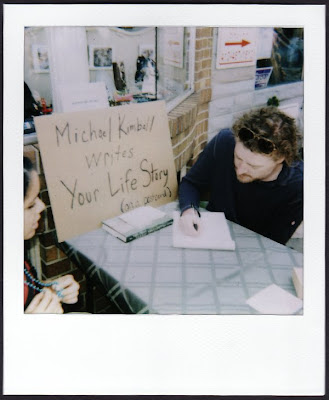 Michael Kimball
Writes
Your Life Story
(on a postcard)